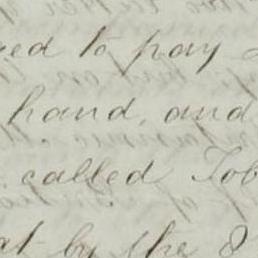 to pay
hand, and
called Tob
at by the 8